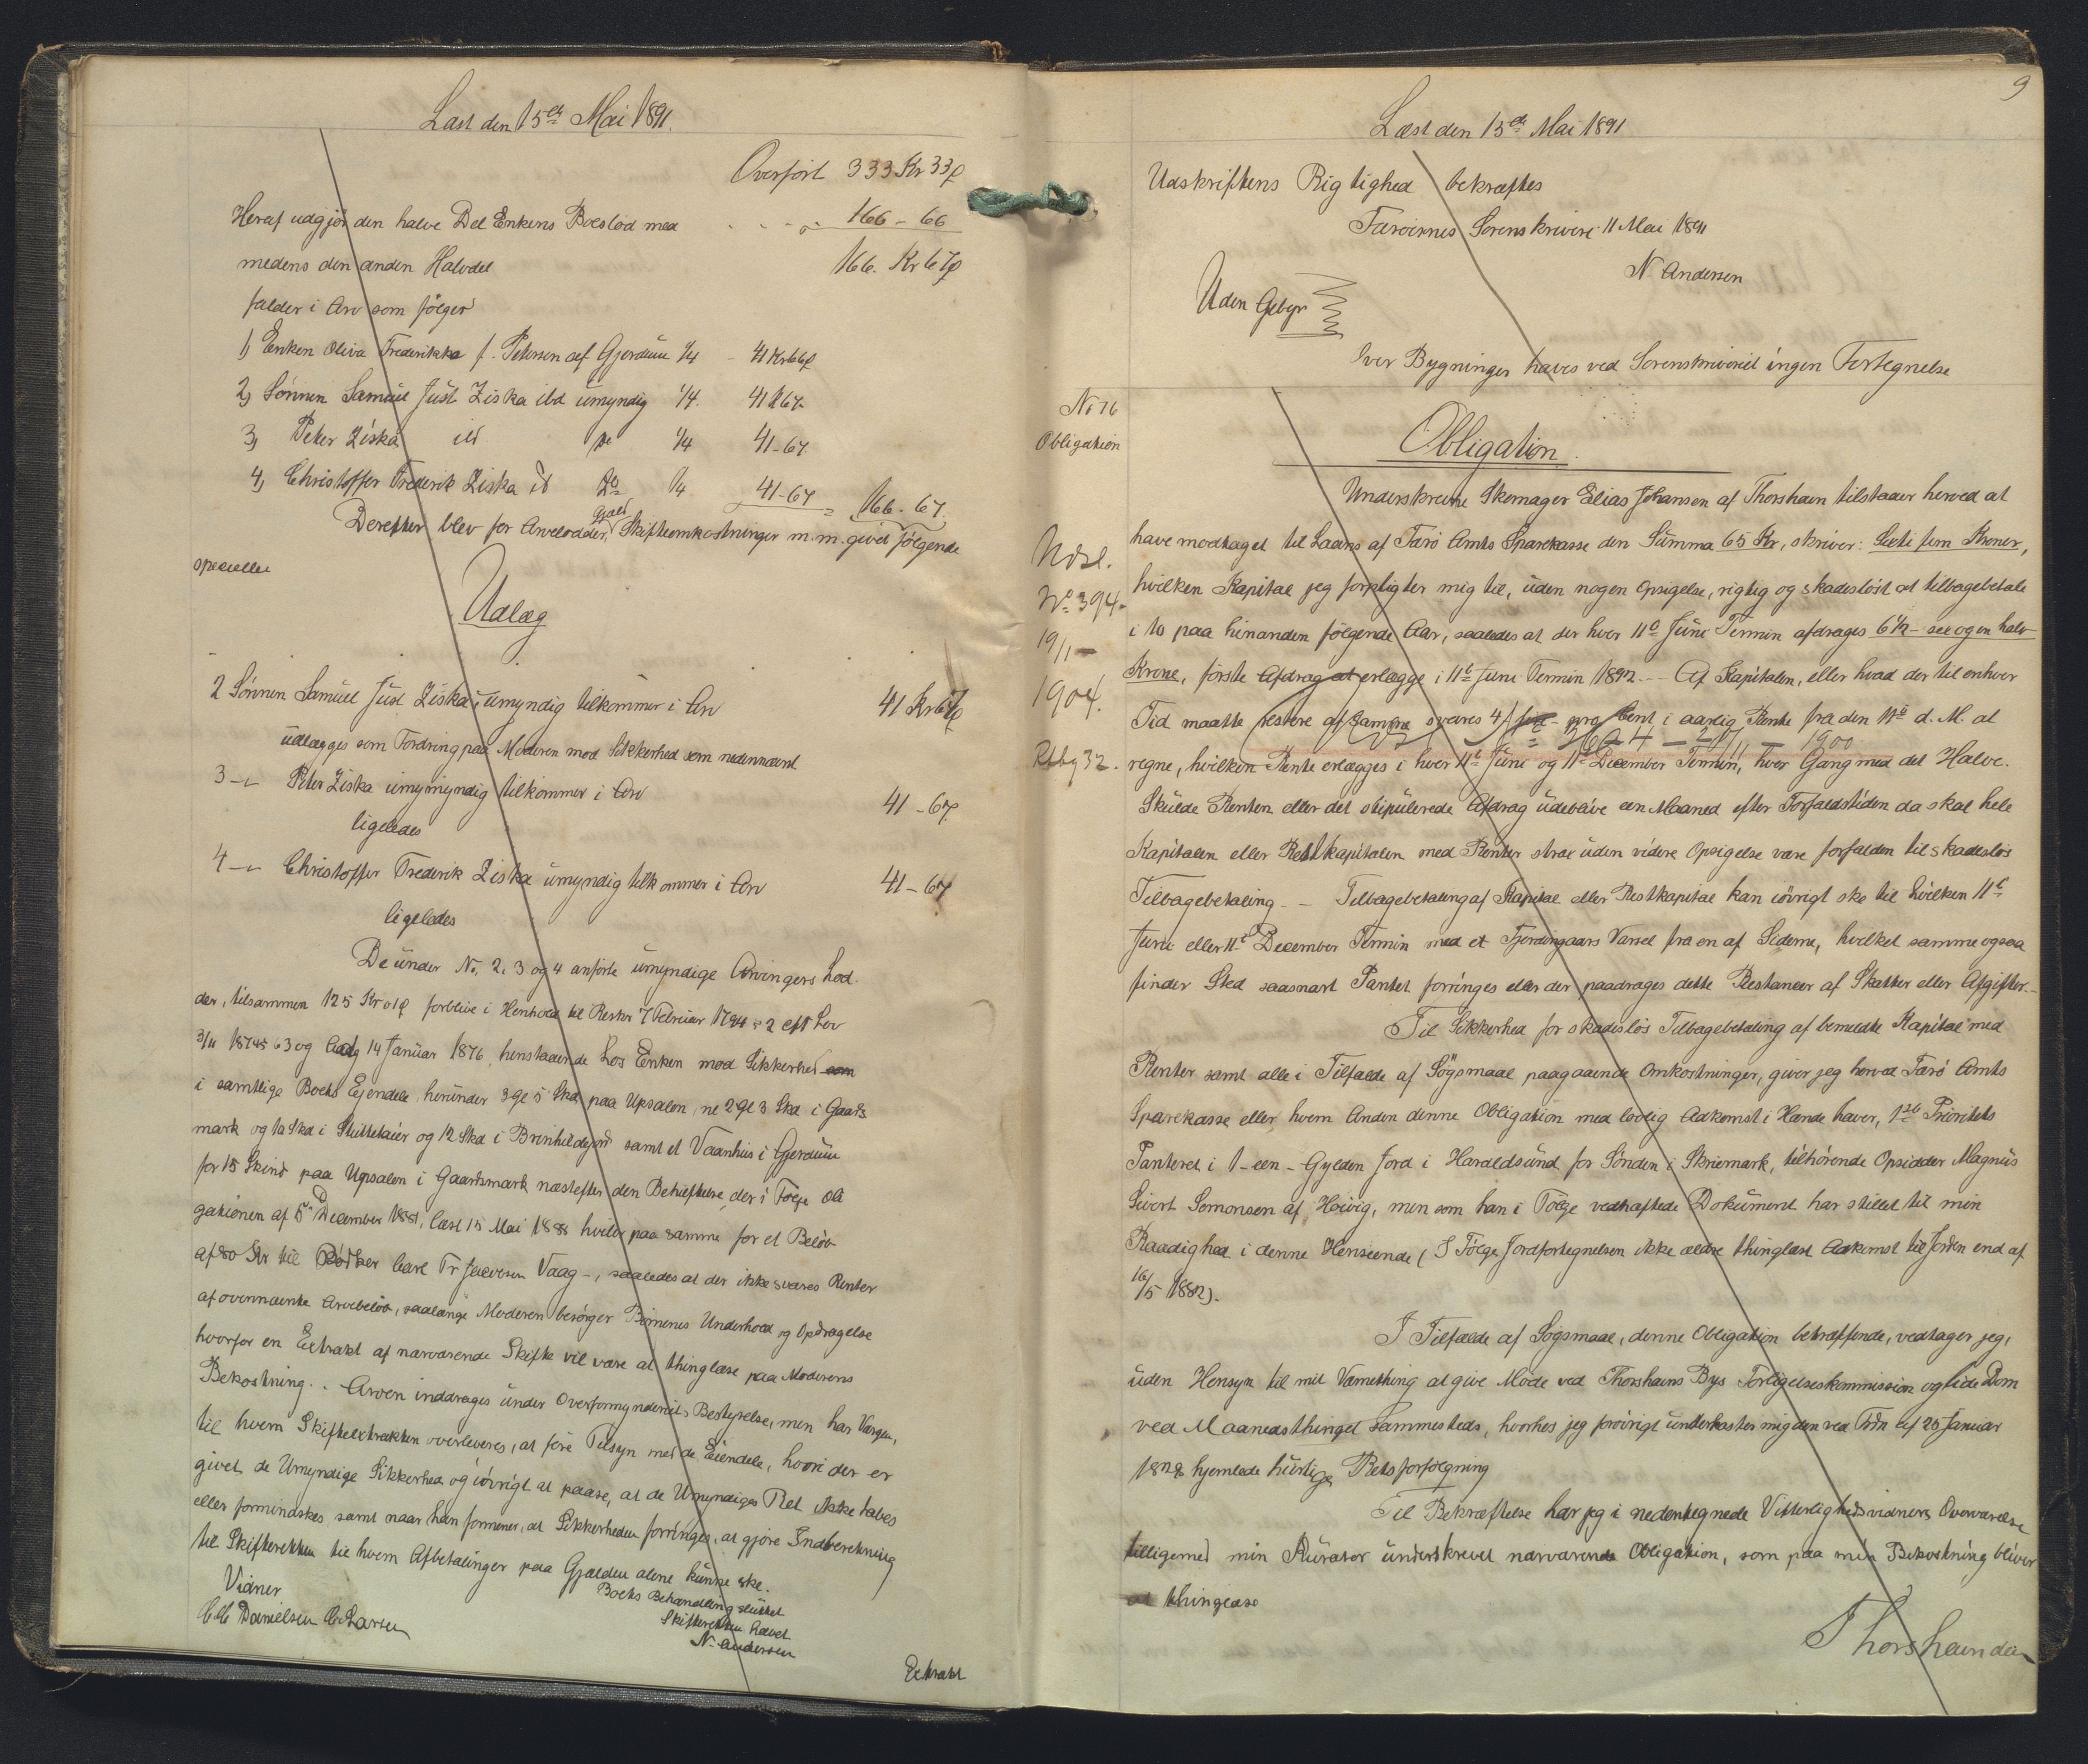 Læst den 15de Mai 1891.
Overført 333 Kr 33 ø
Heraf udgjør den halve Del Enkens Boeslod med 166 - 66
medens den anden Halvdel 166. Kr 67 ø
falder i Arv som følger
1) Enken Oliva Frederikke f. Petersen af Gjerdum 1/4 - 41 Kr 66 ø
2) Sønnen Samuel Just Ziska ibd umyndig 1/4. 41 - 67
3) Peter Ziska ibd do 1/4 41 - 67
4) Christoffer Frederik Ziska ibd Do 1/4 41 - 67 = 166 - 67.
Derefter blev for Arvelodder, Gjæld, Skifteomkostninger m.m. givet følgende
specielle
Udlæg
2 Sønnen Samuel Just Ziska, umyndig tilkommer i Arv 41 Kr 67 ø
udlægges som Fordring paa Moderen mod Sikkerhed som nedennævnt
3 - Peter Ziska umymyndig tilkommer i Arv 41 - 67
ligeledes
4 - Christoffer Frederik Ziska umyndig tilkommer i Arv 41 - 67
ligeledes
De under No. 2, 3 og 4 anførte umyndige Arvingers Lod-
der, tilsammen 125 Kr 01 ø forblive i Henhold til Reskr 7 Februar 1794 § 2 cfr Lov
3/4 1874 § 63 og 14 Januar 1876, henstaaende hos Enken mod Sikkerhed som
i samtlige Boets Ejendele, herunder 3 Gl 5 Skd paa Upsalen, ne 2 Gl 3 Skd i Gaards
mark og 12 Skd i og 12 Skd i samt et Vaanhus i Gjerdum
for 15 Skind paa Upsalen i Gaardsmark næstefter den Behæftelse, der i Følge Obli
gationen af 5te December 1881, læst 15 Mai 1888 hviler paa samme for et Beløb
af 80 Kr til Bødker Carl Fr Jacobsen Vaag -, saaledes at der ikke svares Renter
af ovennævnte Arvebeløb, saalænge Moderen besørger Børnenes Underhold og Opdragelse
hvorfor en Extrakt af nærværende Skifte vil være at thinglæse paa Moderens
Bekostning. - Arven inddrages under Overformynderiets Bestyrelse, men har Værgen,
til hvem Skifteextrakten overleveres, at føre Tilsyn med de Eiendele, hvori der er
givet de Umyndige Sikkerhed og iøvrigt at paase, at de Umyndiges Ret ikke tabes
eller formindskes, samt naar han formener, at Sikkerheden forringes, at gjøre Indberetning
til Skifteretten til hvem Afbetalinger paa Gjælden alene kunne ske.
Boets Behandling sluttet
Skifteretten hævet
N. Andersen
Vidner
Danielsen Larsen
Extrakt
9
Læst den 15de Mai 1891
Udskriftens Rigtighed bekræftes
Færøernes Sorenskriveri 11 Mai 1891
N. Andersen
Uden Gebyr
Over Bygninger haves ved Sorenskriveriet ingen Fortegnelse
No 16
Obligation
Obligation.
Underskrevne Skomager Elias Johansen af Thorshavn tilstaaer herved at
have modtaget til Laans af Færø Amts Sparekasse den Summa 65 Kr, skriver: Sexti fem Kroner,
hvilken Kapital jeg forpligter mig til, uden nogen Opsigelse, rigtig og skadesløst at tilbagebetale
i to paa hinanden følgende Aar, saaledes at der hver 11te Juni Termin afdrages 6½ - sex og en halv
Krone, første Afdrag at erlægge i 11te Juni Termin 1892. - Af Kapitalen, eller hvad der til enhver
Tid maatte restere af samme svares 4 pro Cent i aarlig Rente fra den 11te d. M. at
regne, hvilken Rente erlægges i hver 11te Juni og 11te December Termin, hver Gang med det Halve.
Udsl.
No 394-
19/1 -
1904.
Rbbg 32.
Skulde Renten eller det stipulerede Afdrag udeblive een Maaned efter Forfaldstiden da skal hele
Kapitalen eller Restkapitalen med Renter strax uden videre Opsigelse være forfalden til skadesløs
Tilbagebetaling. - Tilbagebetaling af Kapital eller Restkapital kan iøvrigt ske til hvilken 11te
Juni eller 11te December Termin med et Fjerdingaars Varsel fra en af Siderne, hvilket samme ogsaa
finder Sted saasnart Pantet forringes eller der paadrages dette Restancer af Skatter eller Afgifter. -
Til Sikkerhed for skadesløs Tilbagebetaling af bemeldte Kapital med
Renter samt alle i Tilfælde af Søgsmaal paagaaende Omkostninger, giver jeg herved Færø Amts
Sparekasse eller hvem Anden denne Obligation med lovlig Adkomst i Hænde haver, 1ste Prioritets
Panteret i 1 - een - Gylden Jord i Haraldsund for Sønden i Skriemark, tilhørende Opsidder Magnus
Sivert Somonsen af Høivig, men som han i Følge vedhæftede Dokument har stillet til min
Raadighed i denne Henseende (I Følge Jordfortegnelsen ikke ældre thinglæst Adkomst til Jorden end af
16/5 1882).
I Tilfælde af Søgsmaal, denne Obligation betræffende, vedtager jeg,
uden Hensyn til mit Værnething at give Møde ved Thorshavns Byes Forligelseskommission og lide Dom
ved Maanedsthinget sammesteds, hvorhos jeg forøvrigt underkaster mig den ved Frdn af 25 Januar
1828 hjemlede hurtige Retsforfølgning
Til Bekræftelse har jeg i nedentegnede Vitterlighedsvidners Overværelse
tilligemed min Kurator underskrevet nærværende Obligation, som paa min Bekostning bliver
at thinglæse
Thorshavn den